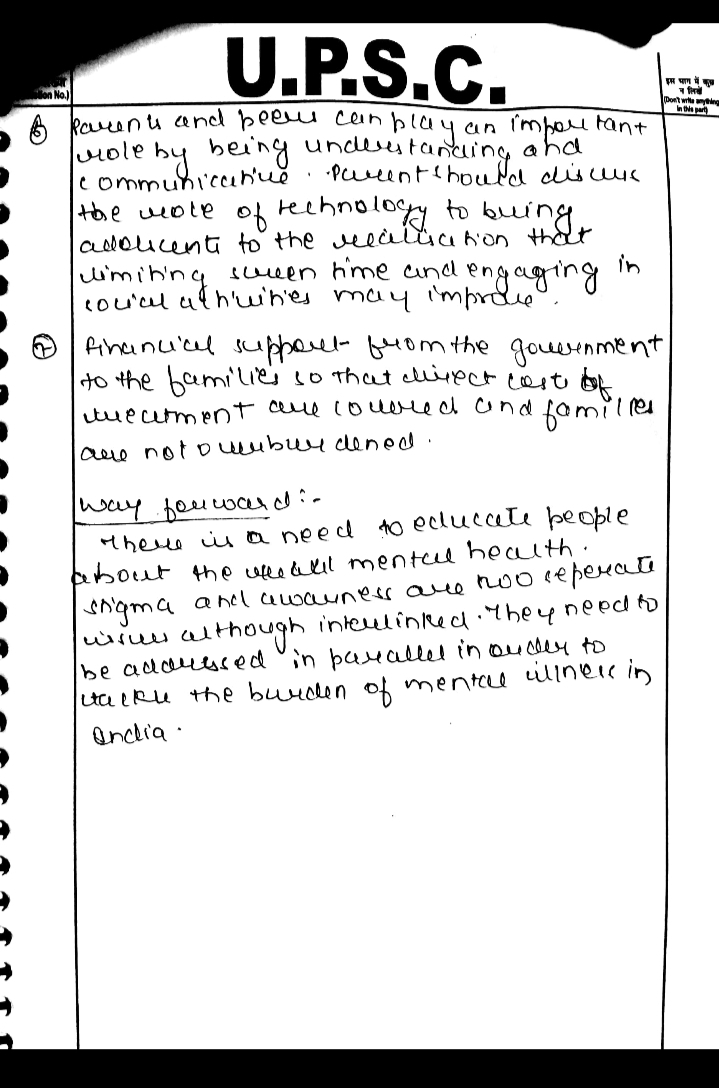 U.P.S.C.
ion No.)
इस भाग में कुछ
न लिखें
(Don't write anything
in this part)
⑥ Parents and peers can play an important
role by being understanding and
communicative. Parent should discuss
the role of technology to bring
adolescents to the realisation that
limiting screen time and engaging in
social activities may improve.
⑦ financial support from the government
to the families so that direct cost of
treatment are covered and families
are not overburdened.
way forward:-
There is a need to educate people
about the mental health.
stigma and awarness are two seperate
issues although interlinked. They need to
be addressed in parallel in order to
tackle the burden of mental illness in
India.